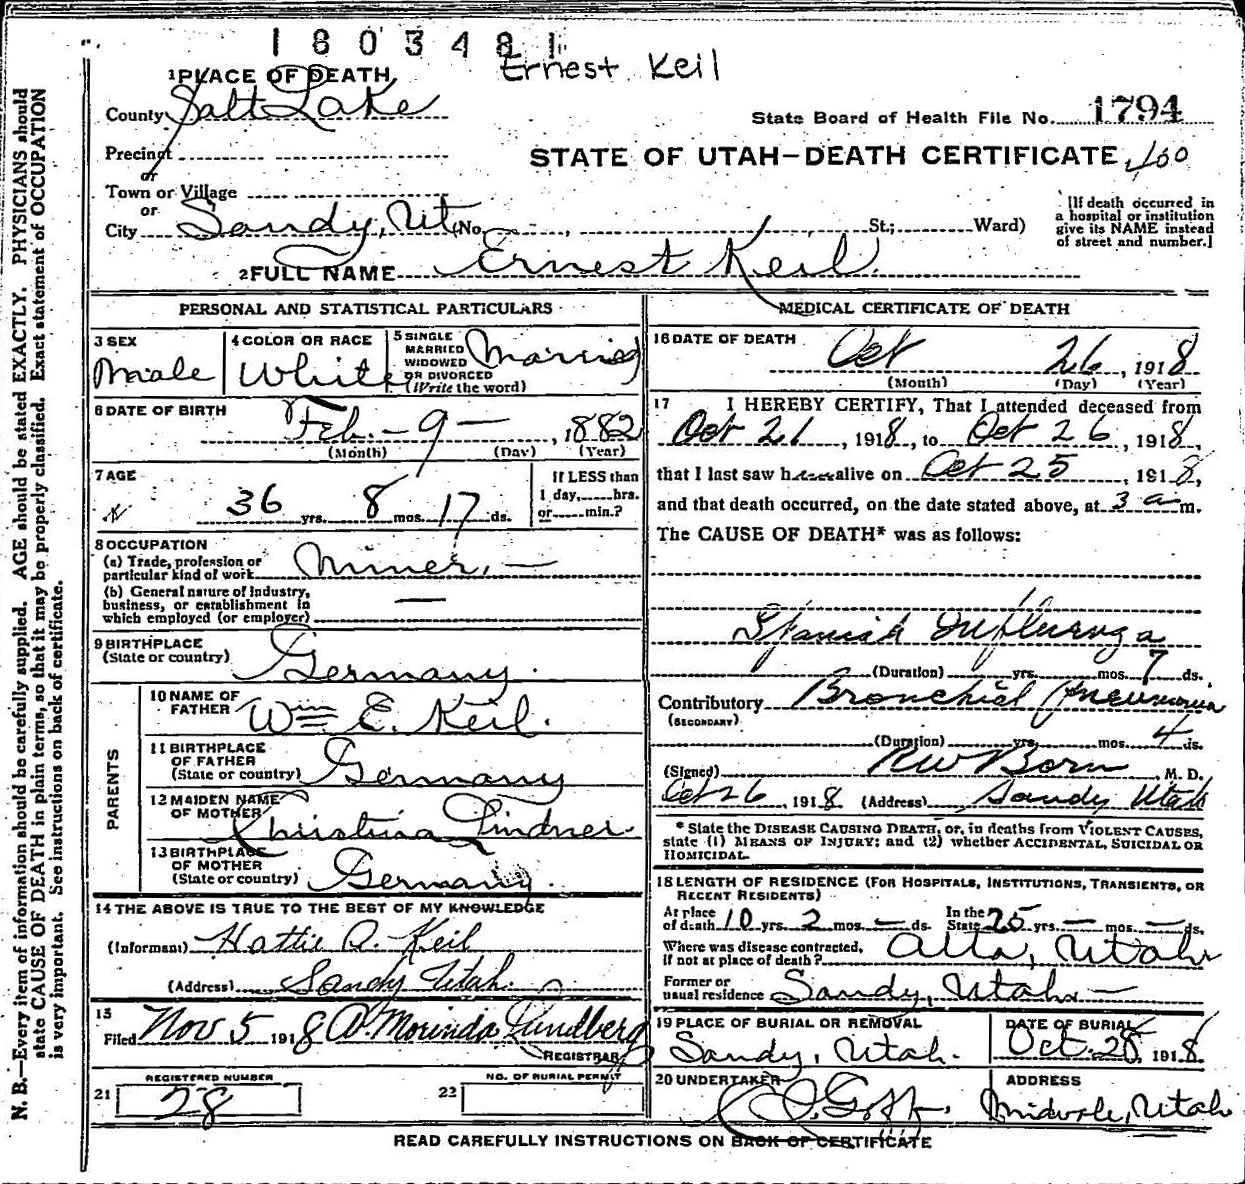 1803481
Ernest Keil
1 PLACE OF DEATH
County Salt Lake
State Board of Health File No. 1794
Precinct
or
STATE OF UTAH—DEATH CERTIFICATE 400
Town or Village
or
City Sandy, Ut (No. , St.; Ward)
[If death occurred in
a hospital or institution
give its NAME instead
of street and number.]
2 FULL NAME Ernest Keil
PERSONAL AND STATISTICAL PARTICULARS
3 SEX
Male
4 COLOR OR RACE
White
5 SINGLE
MARRIED
WIDOWED
OR DIVORCED
(Write the word)
Married
6 DATE OF BIRTH
Feb. - 9 - , 1882
(Month) (Day) (Year)
7 AGE
36 yrs. 8 mos. 17 ds.
If LESS than
1 day, hrs.
or min.?
8 OCCUPATION
(a) Trade, profession or
particular kind of work Miner. —
(b) General nature of industry,
business, or establishment in
which employed (or employer) —
9 BIRTHPLACE
(State or country) Germany.
PARENTS
10 NAME OF
FATHER Wm E. Keil.
11 BIRTHPLACE
OF FATHER
(State or country) Germany
12 MAIDEN NAME
OF MOTHER Christina Lindner.
13 BIRTHPLACE
OF MOTHER
(State or country) Germany.
14 THE ABOVE IS TRUE TO THE BEST OF MY KNOWLEDGE
(Informant) Hattie A. Keil
(Address) Sandy Utah.
15
Filed Nov 5 1918 A. Morinda Lundberg
REGISTRAR
REGISTERED NUMBER
21 28
NO. OF BURIAL PERMIT
22
MEDICAL CERTIFICATE OF DEATH
16 DATE OF DEATH
Oct 26, 1918
(Month) (Day) (Year)
17 I HEREBY CERTIFY, That I attended deceased from
Oct 21, 1918, to Oct 26, 1918,
that I last saw him alive on Oct 25, 1918,
and that death occurred, on the date stated above, at 3 a m.
The CAUSE OF DEATH* was as follows:
Spanish Influenza
(Duration) yrs. mos. 7 ds.
Contributory Bronchial Pneumonia
(SECONDARY)
(Duration) yrs. mos. 4 ds.
(Signed) RW Born, M. D.
Oct 26, 1918. (Address) Sandy Utah
* State the DISEASE CAUSING DEATH, or, in deaths from VIOLENT CAUSES,
state (1) MEANS OF INJURY; and (2) whether ACCIDENTAL, SUICIDAL OR
HOMICIDAL.
18 LENGTH OF RESIDENCE (FOR HOSPITALS, INSTITUTIONS, TRANSIENTS, OR
RECENT RESIDENTS)
At place
of death 10 yrs. 2 mos. — ds. In the
State 25 yrs. — mos. — ds.
Where was disease contracted,
if not at place of death? Alta, Utah
Former or
usual residence Sandy, Utah —
19 PLACE OF BURIAL OR REMOVAL
Sandy, Utah.
DATE OF BURIAL
Oct. 28, 1918.
20 UNDERTAKER
Goff.
ADDRESS
Midvale, Utah
READ CAREFULLY INSTRUCTIONS ON BACK OF CERTIFICATE
N. B.—Every item of information should be carefully supplied. AGE should be stated EXACTLY. PHYSICIANS should
state CAUSE OF DEATH in plain terms, so that it may be properly classified. Exact statement of OCCUPATION
is very important. See instructions on back of certificate.